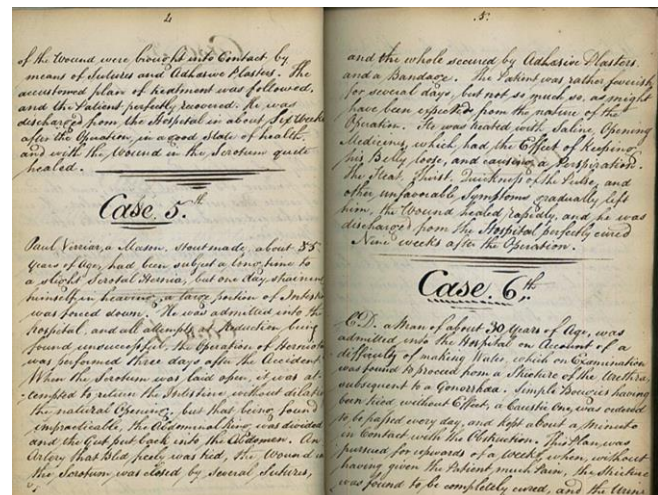 4
of the Wound were brought into Contact by
means of Sutures and Adhasive Plasters. The
accustomed plan of treatment was followed,
and the Patient perfectly recovered. He was
discharged from the Hospital in about Six Weeks
after the Operation, in a good State of health,
and with the Wound in the Scrotum quite
healed.
Case 5.th
Paul, a Mason, stout made, about 35
Years of Age, had been subject a long time to
a slight Scrotal Hernia, but one day, straining
himself in heaving, a large portion of Intestine
was forced down. He was admitted into the
Hospital, and all attempts at Reduction being
found unsuccessful, the Operation of
was performed three days after the Accident.
When the Scrotum was laid open, it was at-
-tempted to return the Intestine without
the natural Opening, but that being found
impracticable, the Abdominal ring was divided
and the Gut put back into the Abdomen. An
Artery that Bled freely was tied, the Wound in
the Scrotum was closed by several Sutures,
5.
and the whole secured by Adhasive Plasters
and a Bandage. The Patient was rather feverish
for several days, but not so much so, as might
have been expected from the nature of the
Operation. He was treated with Saline, Opening
Medicines, which had the Effect of Keeping
his Belly loose, and causing a Perspiration.
The Heat, Thirst, Quickness of the Pulse, and
other unfavorable Symptoms gradually left
him, the Wound healed rapidly, and he was
discharged from the Hospital perfectly cured
Nine weeks after the Operation.
Case 6th
C.D. a Man of about 30 Years of Age, was
admitted into the Hospital on Account of a
difficulty of making Water, which on Examination
was found to proceed from a Stricture of the Urethra,
subsequent to a Gonorrhœa. Simple Bougies having
been tried without Effect, a Caustic One, was ordered
to be passed every day, and kept about a Minute
in Contact with the Obstruction. This Plan, was
pursued for upwards of a Week, when, without
having given the Patient much Pain, the Stricture
was found to be completely cured, and the Urine